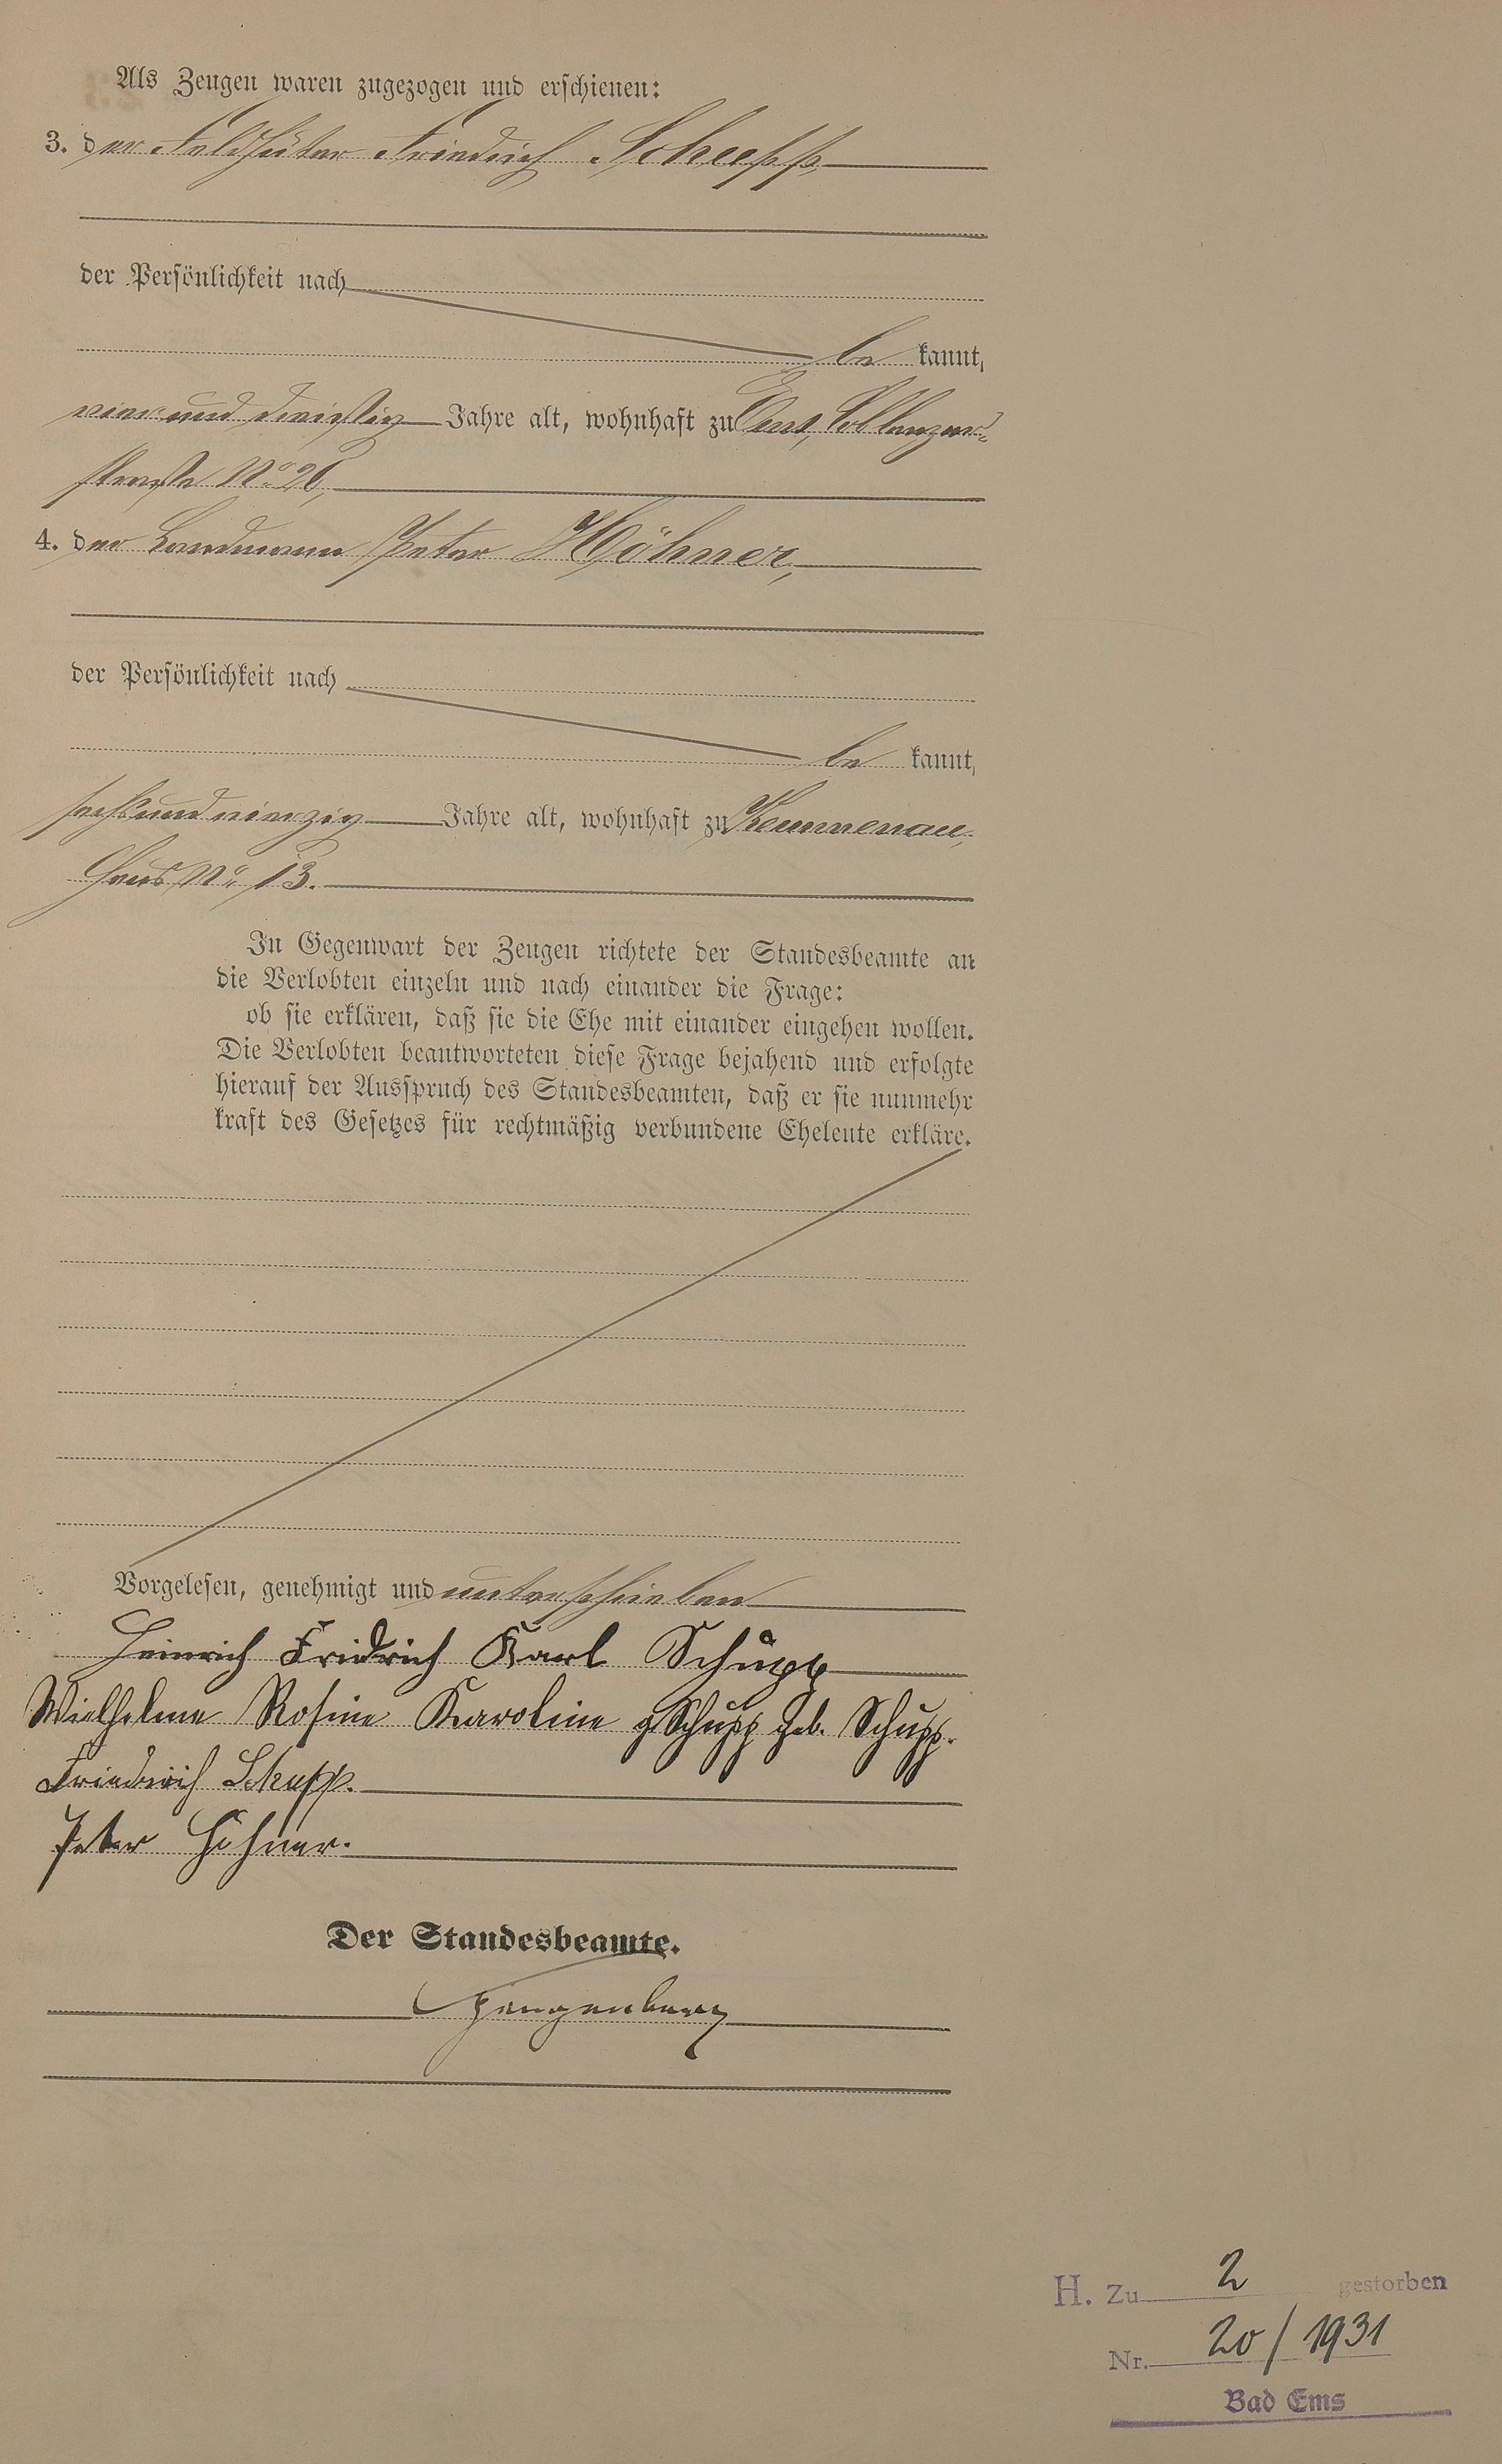 Als Zeugen waren zugezogen und erschienen:
3. der Feldhüter Friedrich Schupp,
der Persönlichkeit nach
be kannt,
vierunddreißig Jahre alt, wohnhaft zu Ems, Coblenzer-
straße No 26,
4. der Landmann Peter Höhner,
der Persönlichkeit nach
be kannt,
sechsundvierzig Jahre alt, wohnhaft zu Kemmenau,
Haus No 13.
In Gegenwart der Zeugen richtete der Standesbeamte an
die Verlobten einzeln und nach einander die Frage:
ob sie erklären, daß sie die Ehe mit einander eingehen wollen.
Die Verlobten beantworteten diese Frage bejahend und erfolgte
hierauf der Ausspruch des Standesbeamten, daß er sie nunmehr
kraft des Gesetzes für rechtmäßig verbundene Eheleute erkläre.
Vorgelesen, genehmigt und unterschrieben
Heinrich Fridrich Karl Schupp
Wielhelme Rosine Karoline Schupp geb. Schupp.
Friedrich Schupp.
Peter Höhner.
Der Standesbeamte.
H. Zu 2 gestorben
Nr. 20/1931
Bad Ems